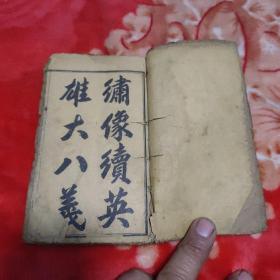 繡像續英
雄大八義